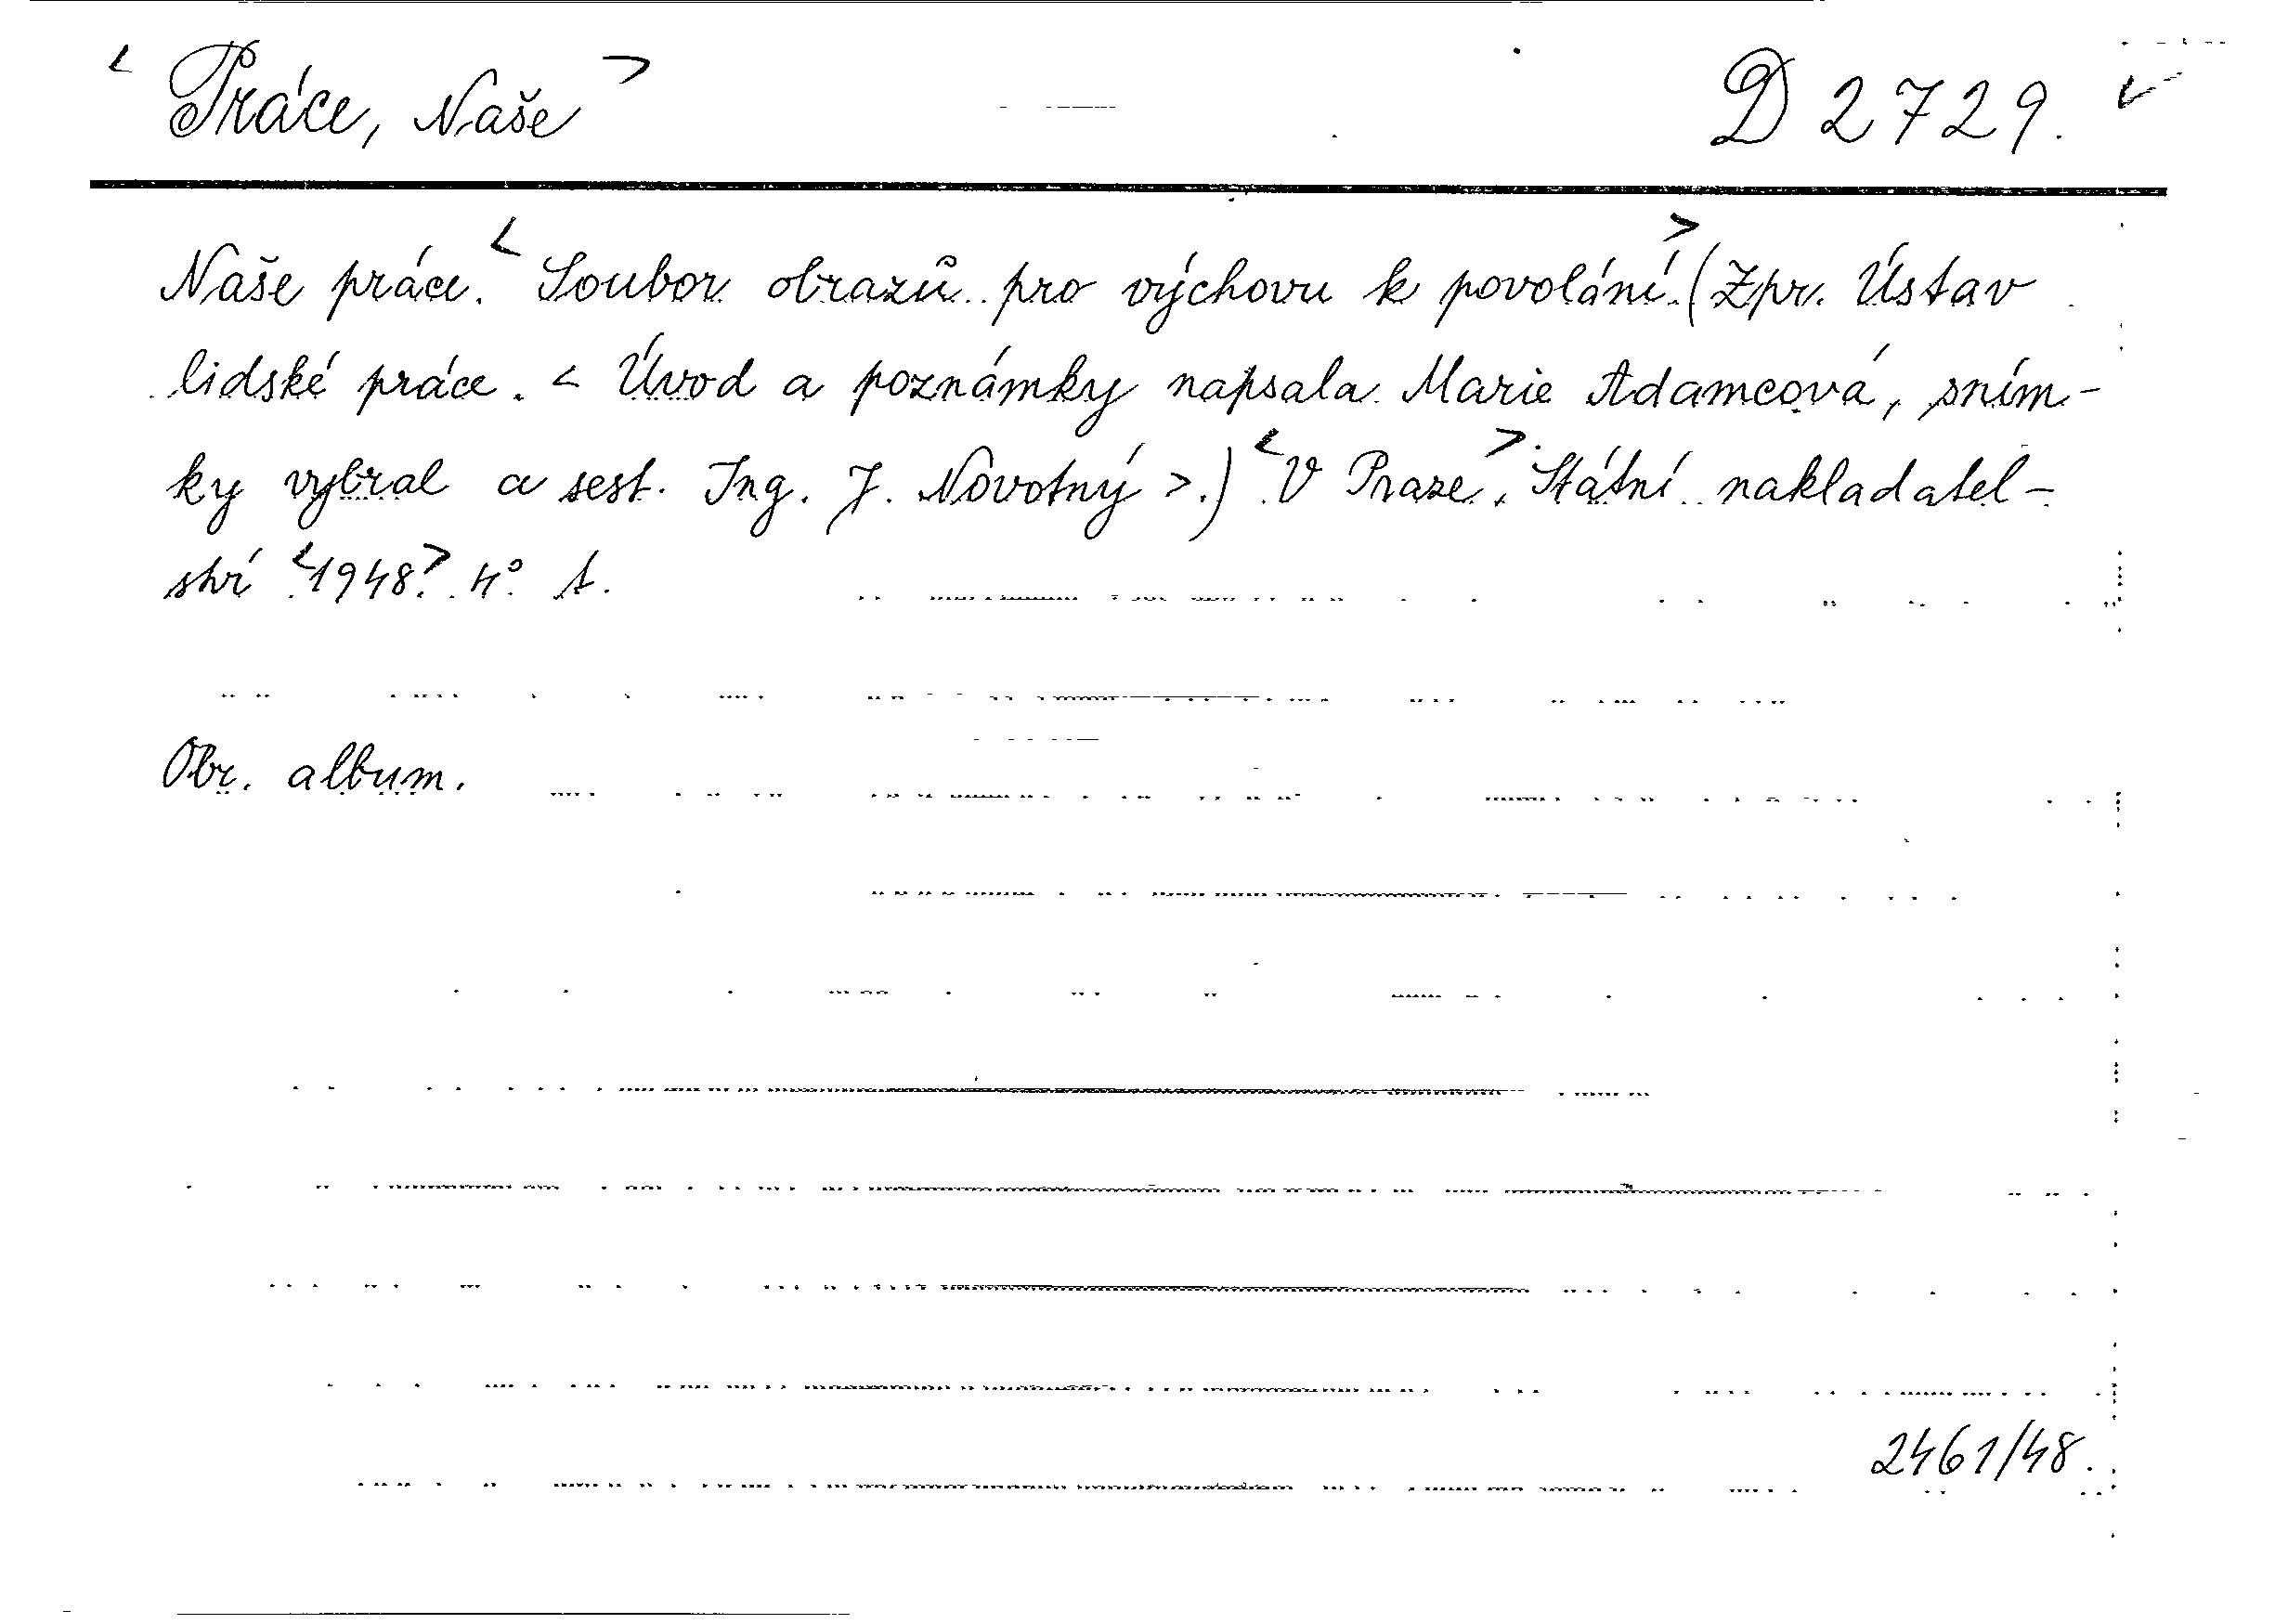 < Práce, Naše > D 2729.
Naše práce. < Soubor obrazů pro výchovu k povolání.> (Zpr. Ústav
lidské práce. < Úvod a poznámky napsala Marie Adamcová, sním-
ky vybral a sest. Ing. J. Novotný >.) <V Praze>. Státní nakladatel-
ství <1948>. 4° A.
Obr. album.
2461/48.